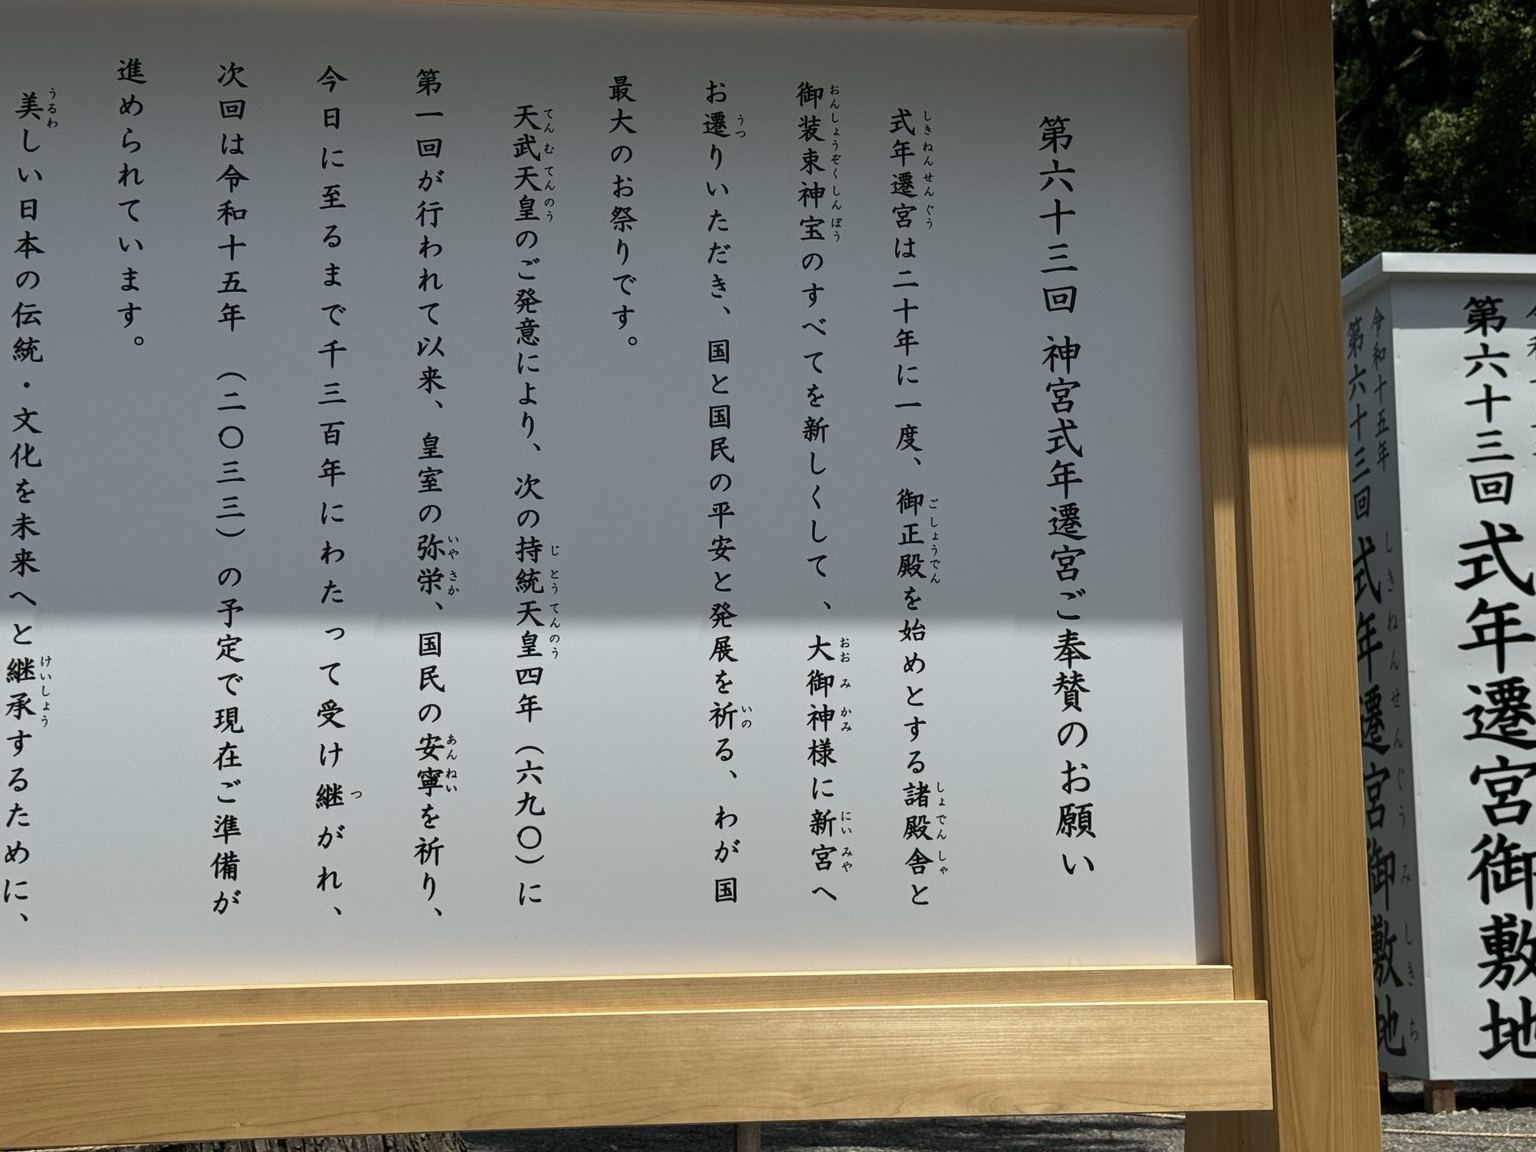 第六十三回 神宮式年遷宮ご奉賛のお願い
式年遷宮は二十年に一度、御正殿を始めとする諸殿舎と
御装束神宝のすべてを新しくして、大御神様に新宮へ
お遷りいただき、国と国民の平安と発展を祈る、わが国
最大のお祭りです。
天武天皇のご発意により、次の持統天皇四年（六九〇）に
第一回が行われて以来、皇室の弥栄、国民の安寧を祈り、
今日に至るまで千三百年にわたって受け継がれ、
次回は令和十五年（二〇三三）の予定で現在ご準備が
進められています。
美しい日本の伝統・文化を未来へと継承するために、
第六十三回 式年遷宮御敷地
令和十五年
第六十三回 式年遷宮御敷地